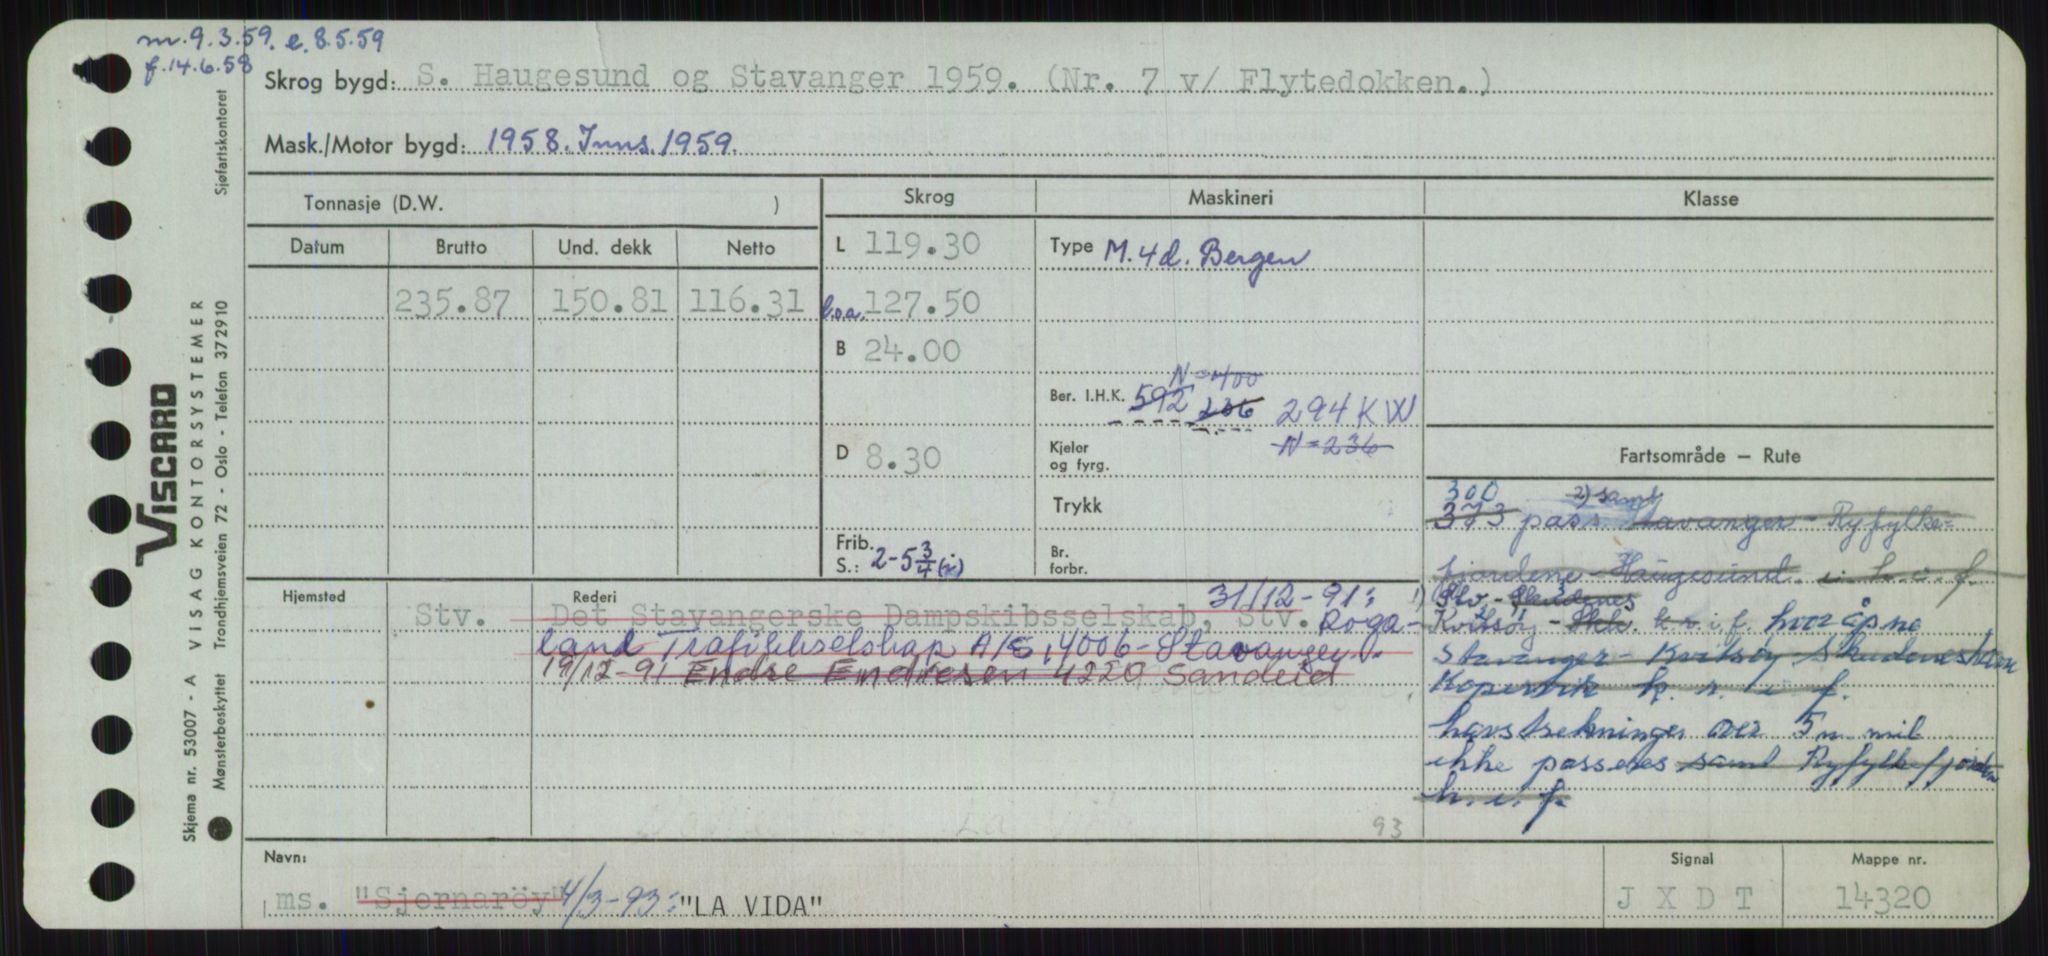 m.9.3.59. e.8.5.59
f.14.6.58
Skrog bygd: S. Haugesund og Stavanger 1959. (Nr. 7 v/ Flytedokken.)
Mask./Motor bygd: 1958. Inns. 1959.
Sjøfartskontoret
Skjema nr. 53007 - A VISAG KONTORSYSTEMER
Mønsterbeskyttet Trondhjemsveien 72 - Oslo - Telefon 372910
VISCARD
Tonnasje (D.W. )
Skrog
Maskineri
Klasse
Datum
Brutto
Und. dekk
Netto
L 119.30
Type M. 4 d. Bergen
235.87 150.81 116.31
l.o.a. 127.50
B 24.00
N=400
Ber. I.H.K. 592 236 294 KW
N=236
D 8.30
Kjeler
og fyrg.
Trykk
Frib.
S.: 2-5 3/4
Br.
forbr.
Fartsområde - Rute
300 2) samt
373 pass. Stavanger - Ryfylke=
fjordene - Haugesund
1) Stv. - Skudenes
Kvitsøy - k.r.i.f. hvor åpne
Stavanger - Kvitsøy Skudeneshavn
Kopervik h. r. i f.
havstrekninger over 5 n. mil
ikke passeres samt Ryfylkefjorden
h. i. f.
Hjemsted
Stv.
Rederi
Det Stavangerske Dampskibsselskab, Stv. 31/12-91: Roga-
land Trafikkselskap A/S, 4006-Stavanger
19/12-91 Endre Endresen 4220 Sandeid
La
93
Navn:
ms. "Sjernaröy" 4/3-93: "LA VIDA"
Signal
J X D T
Mappe nr.
14320